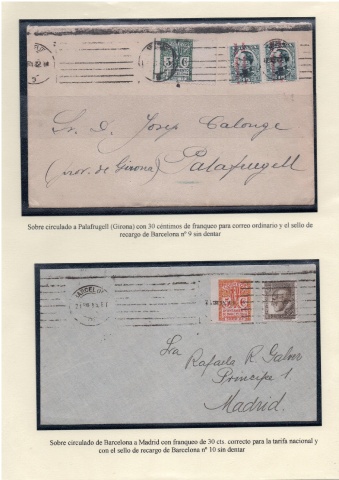 BARCELONA
5 C
Sr. D. Josep Calonge
(prov. de Girona) Palafrugell
Sobre circulado a Palafrugell (Girona) con 30 céntimos de franqueo para correo ordinario y el sello de
recargo de Barcelona nº 9 sin dentar
BARCELONA
5 C
Sra
Rafaela R. Galver
Principe 1
Madrid.
Sobre circulado de Barcelona a Madrid con franqueo de 30 cts. correcto para la tarifa nacional y
con el sello de recargo de Barcelona nº 10 sin dentar